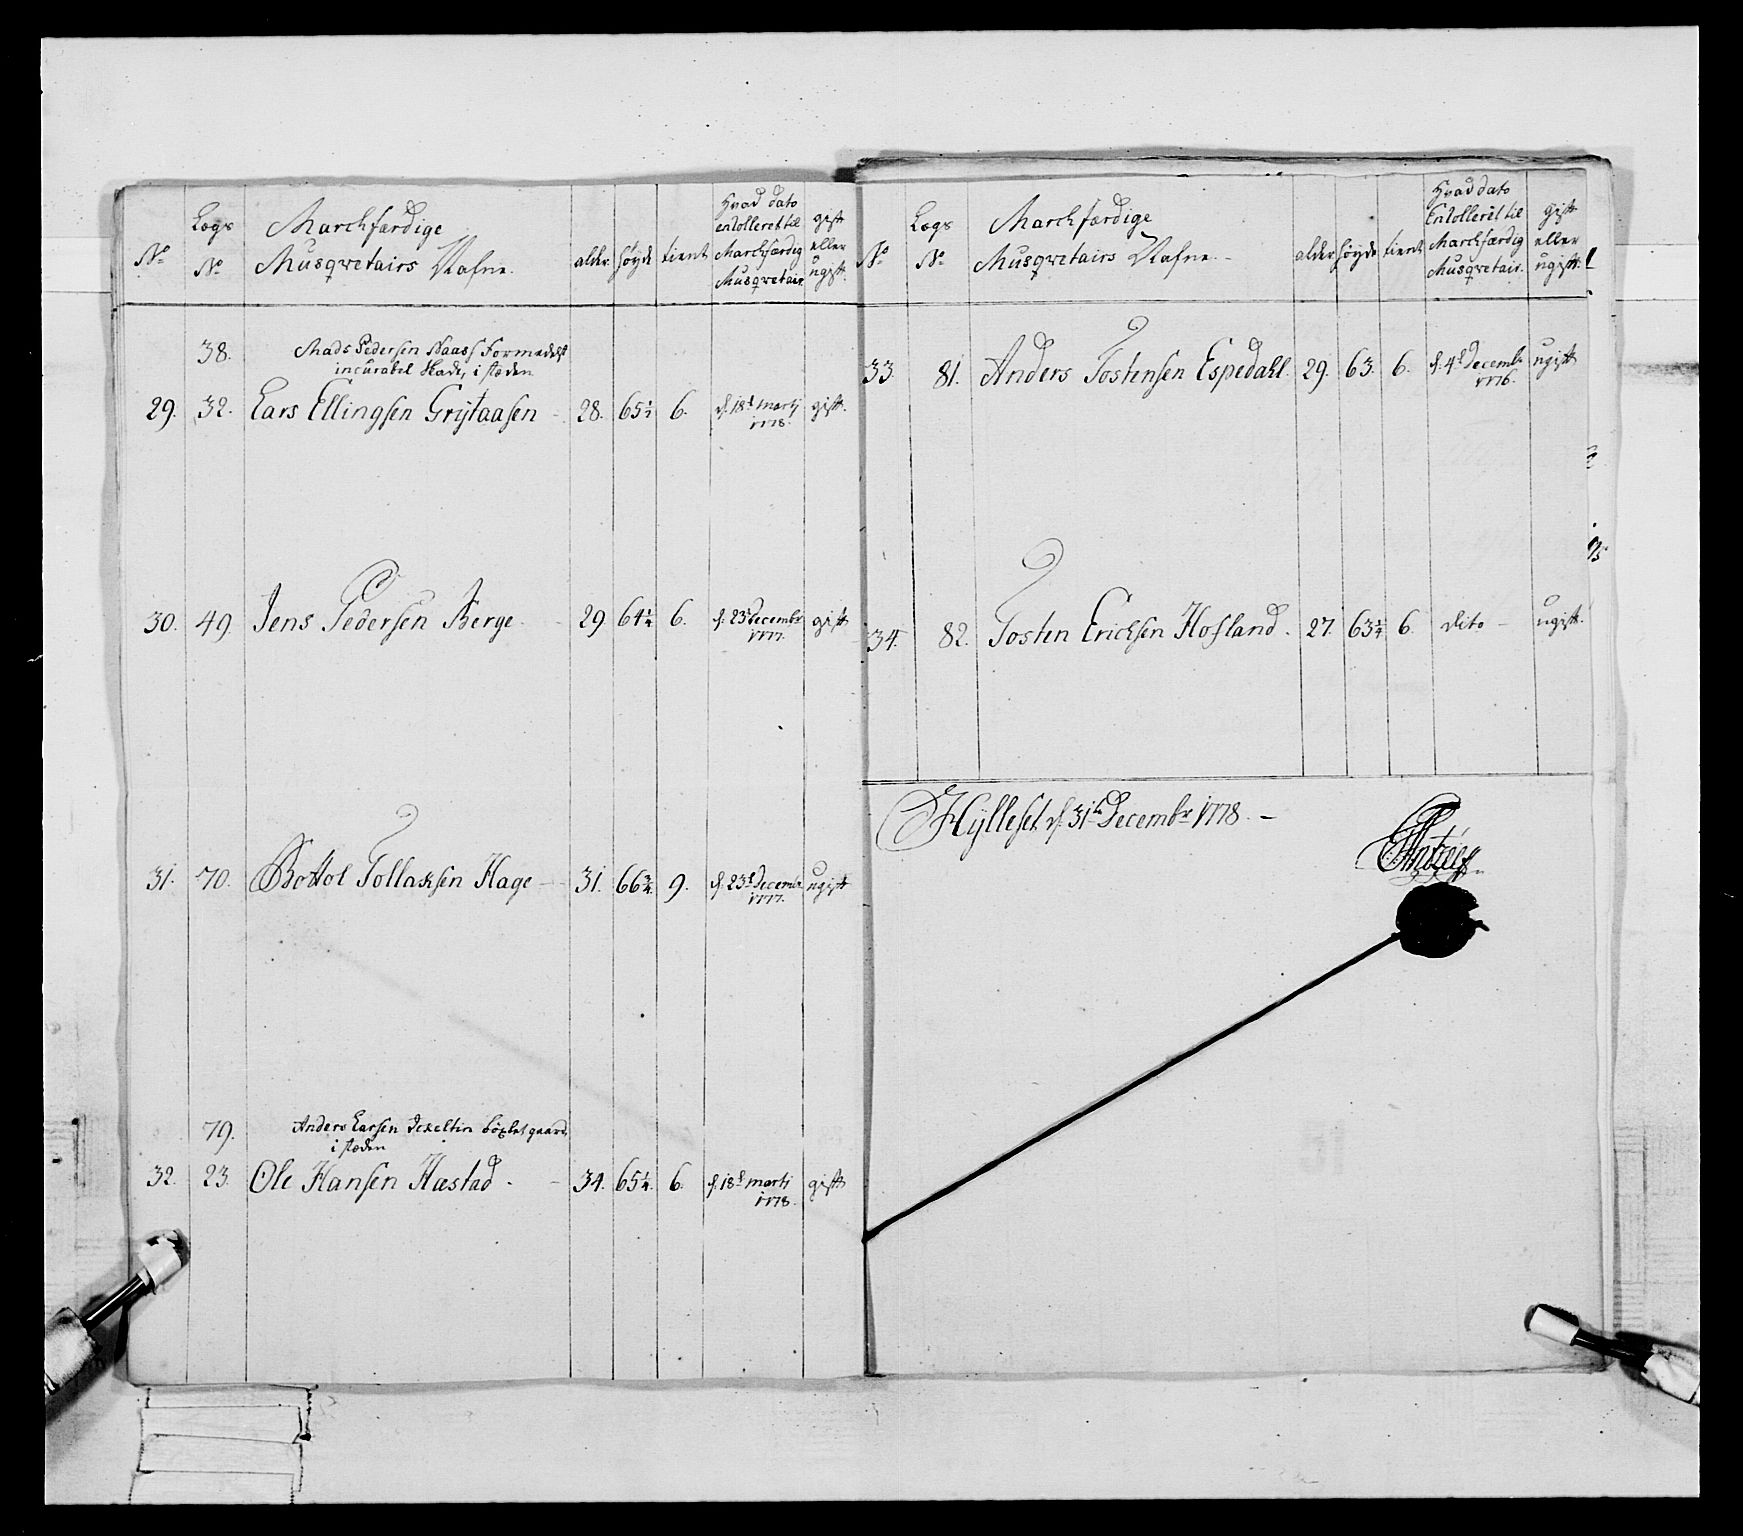 No Lægs No Marchfærdige Musqvetairs Nafne. alder høyde tient Hvad dato enrolleret til Marchfærdig Musqvetair gift eller ugift.
38. Mads Pedersen Naass Formedelst
incurabel Skade, i stæden
29. 32. Lars Ellingsen Gristaasen 28. 65½ 6. d. 18d marti 1778. gift.
30. 49. Jens Pedersen Berge. 29 64¼ 6. d. 23d decembr 1777. gift
31. 70. Bottol Tollaksen Hage 31. 66¾. 9. d. 23d Decembr 1777. ugift
79. Anders Larsen
i stæden
32. 23. Ole Hansen Hæstad. 34. 65¼. 6. d. 18d marti 1778. gift
No Lægs No Marchfærdige Musqvetairs Nafne. alder høyde tient Hvad dato Enrolleret til Marchfærdig Musqvetair. gift eller ugift.
33. 81. Anders Tostensen Espedahl. 29. 63. 6. d. 4d Decembr 1776. ugift
34. 82. Tosten Ericksen Hofland. 27. 63¼ 6. dito ugift.
Hylleset d. 31te Decembr 1778.